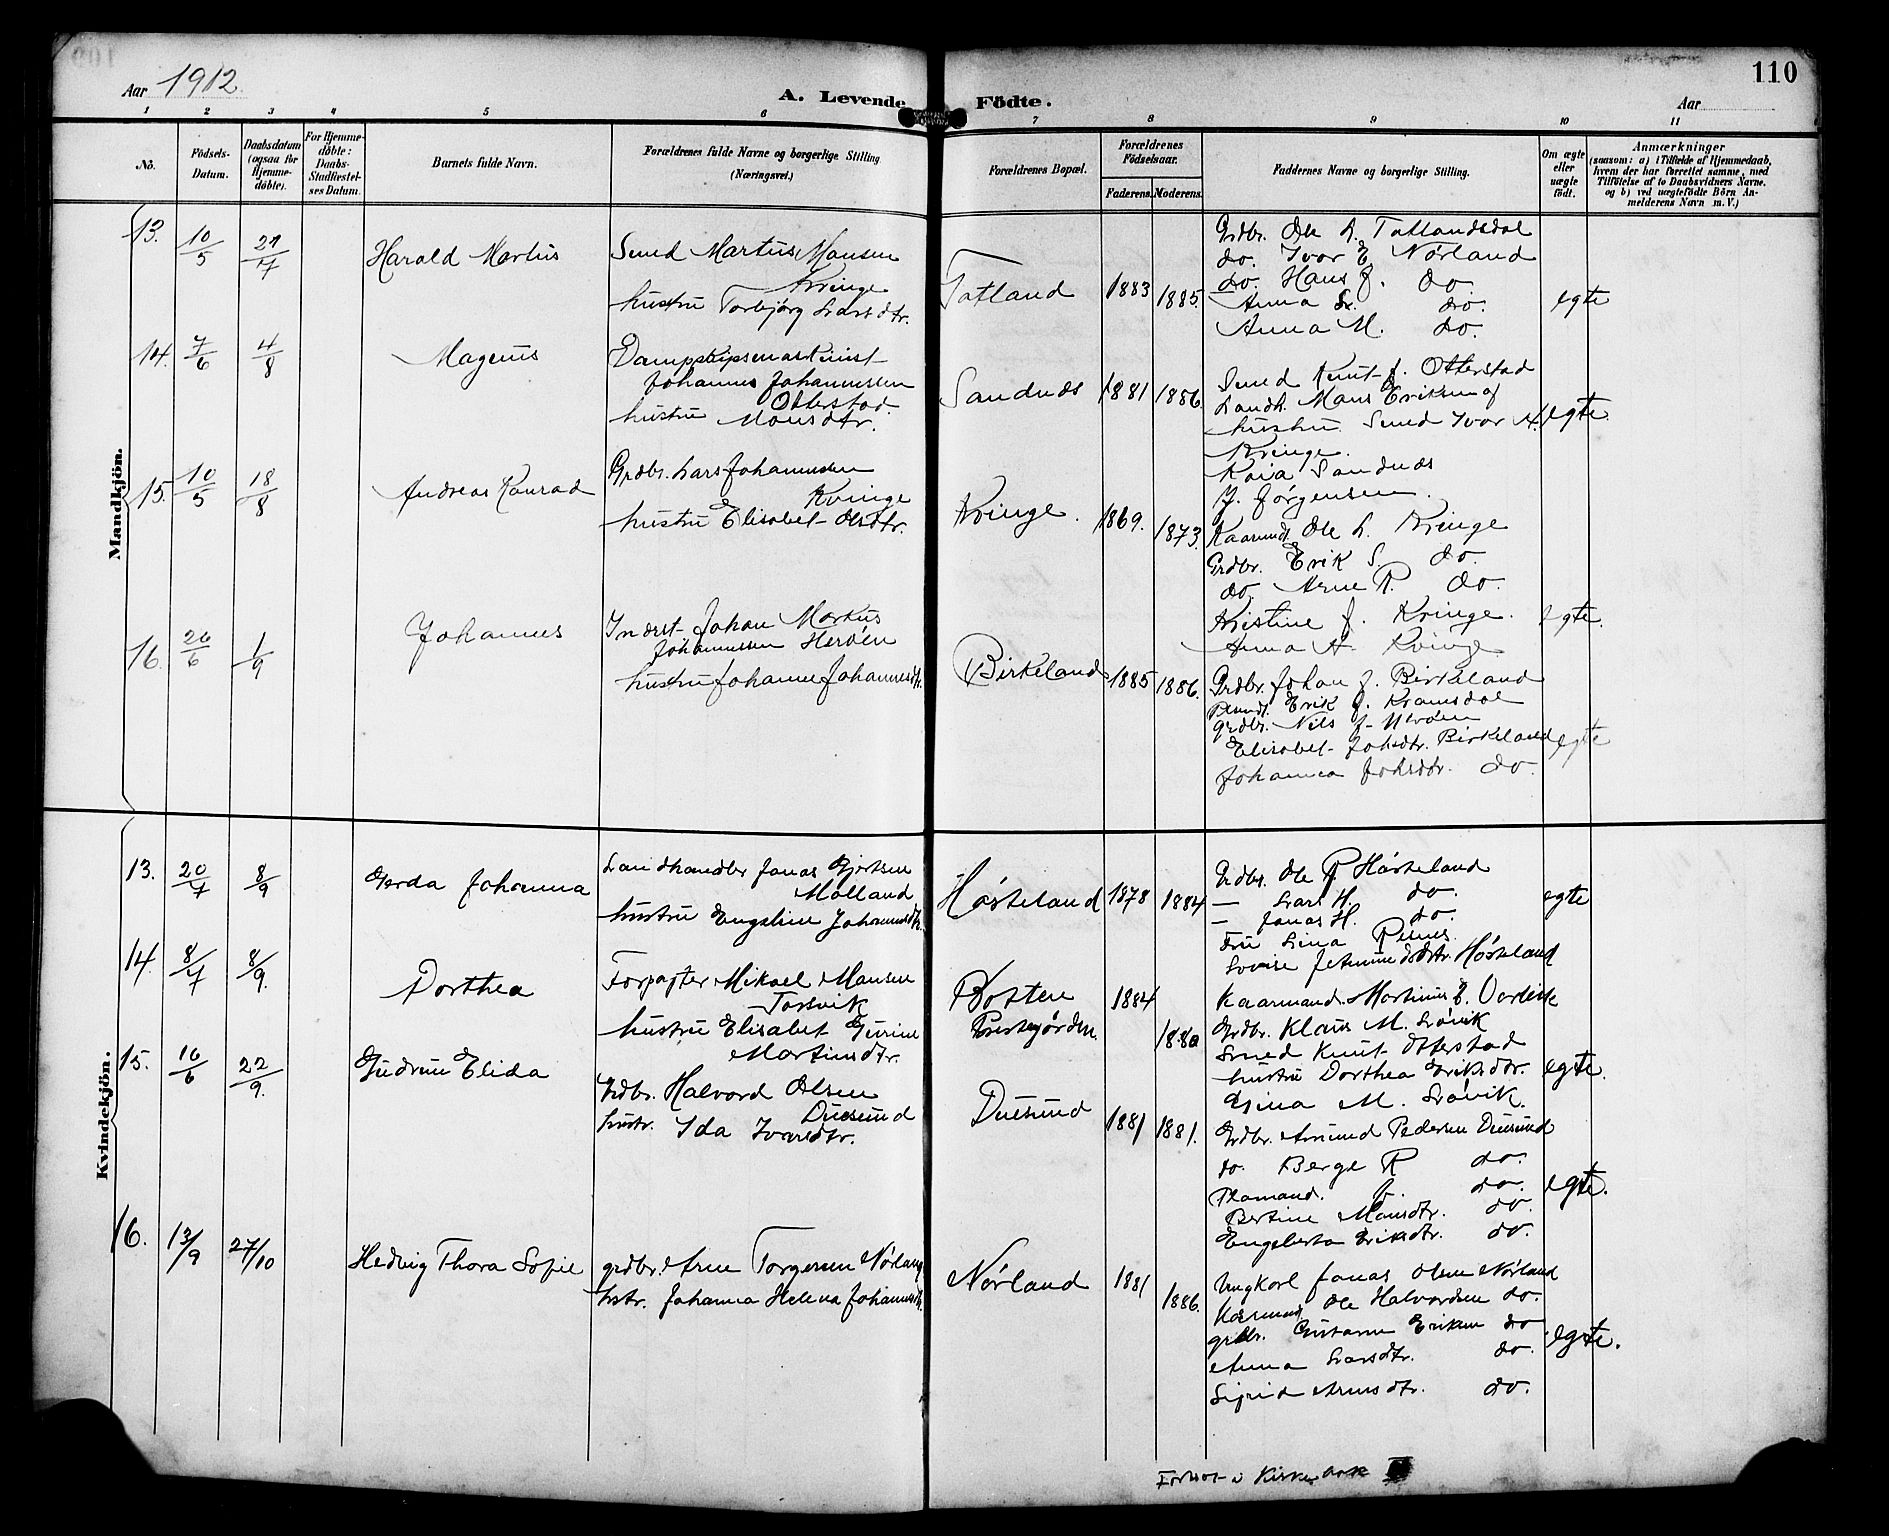 110
Aar 1912.
A. Levende Födte.
Aar
1 2 3 4 5 6 7 8 9 10 11
No.
Födsels-
Datum.
Daabsdatum
(ogsaa for
Hjemme-
döbte).
For Hjemme-
döbte:
Daabs-
Stadfæstel-
ses Datum.
Barnets fulde Navn.
Forældrenes fulde Navne og borgerlige Stilling
(Næringsvei.)
Forældrenes Bopæl.
Forældrenes
Födselsaar.
Faderens. Moderens.
Faddernes Navne og borgerlige Stilling.
Om ægte
eller
uægte
födt.
Anmærkninger
(saasom: a) i Tilfælde af Hjemmedaab,
hvem der har forrettet samme, med
Tilföielse af to Daabsvidners Navne,
og b) ved uægtefödte Börn An-
melderens Navn m. V.)
Mandkjön.
13. 10/5 Harald Martus
Smed Martus Monsen
Kvinge
hustru Torbjørg Larsdtr.
Tatland 1883 1885.
Grdbr. Ole L. Tatlandsdal
do. Ivar E Nørland
do. Hans J. do
Anna do.
Anna M. do.
egte
14. 7/6 4/8 Magnus
Dampskipsmaskinist
Johannes Johannessen
Otterstad
hustru Monsdtr.
Sandnæs 1881 1886.
Smed Knut J. Otterstad
Landh. Mons Eriksen og
hustru. Smed Ivar A.
Kvinge.
Kaia Sandnæs
J. Jørgensen.
egte.
15. 10/5 18/8 Andreas Konrad
Grdbr. Lars Johannessen
Kvinge
hustru Elisabet Olsdtr.
Kvinge. 1869. 1873.
Kaarmd. Ole L. Kvinge
Grdbr. Erik S. do.
do. Arne R. do.
Kristine J. Kvinge.
Anna A. Kvinge
egte.
16. 26/6 1/9 Johannes
Inderst Johan Markus
Johannessen Herøen
hustru Johanne Johannesdtr.
Birkeland 1885 1886.
Grdbr. Johan J. Birkeland
Erik J. Kramsdal
grdbr. Nils J.
Elisabet Johsdtr. Birkeland
Johanna Johsdtr. do.
egte
Kvindekjön.
13. 20/7 8/9 Gerda Johanna
Landhandler Jonas Gjertsen
Molland
hustru Engeline Johannesdtr.
Høsteland 1878 1884
Grdbr. Ole R Høsteland
— Lars H. do.
— Jonas H. do.
Fru Lina
Lovise Høsteland
egte
14. 8/7 8/9. Dorthea
Forpagter Mikael Mansen
Torsvik
hustru Elisabet Gurine
Martinsdtr.
Prestegården. 1884 1880
Kaarmand Martinus E.
Grdbr. Klaus M. Løvik
Smed Knut Otterstad
hustru Dorthea Eriksdtr.
Gina M. Løvik.
egte.
15. 16/6 22/9. Gudrun Elida
Grdbr. Halvard Olsen
Duesund
hustr. Ida Ivarsdtr.
Duesund 1881 1881.
Grdbr. Amund Pedersen Duesund
do. Berge R do.
do.
Bertine Monsdtr. do.
Engelberta Eriksdtr. do.
egte.
16. 13/9 27/10 Hedvig Thora Sofie
grdbr. Arne Torgersen Nørland
hstr. Johanna Helena Johannesdtr.
Nørland 1881 1886.
Ungkarl Jonas Olsen Nørland
Kaarmand Ole Halvardsen do.
grdbr. Gustav Eriksen do
Anna Larsdtr. do.
Sigrid Arnesdtr. do.
egte.